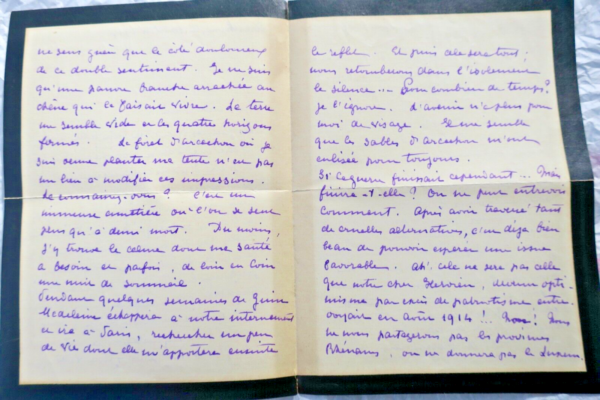 ne sens guère que le côté douloureux
de ce double sentiment. Je ne suis
qu'une pauvre branche arrachée au
chêne qui la faisait vivre. La terre
me semble vide et les quatre horizons
fermés. La forêt d'arcachon où je
suis venue planter ma tente n'a pas
su bien à modifier ces impressions.
La connaissez-vous ? C'est un
immense cimetière où l'on se sent
plus qu'à demi mort. Du moins,
j'y trouve le calme dont ma santé
a besoin et parfois, de loin en loin
une nuit de sommeil.
Pendant quelques semaines de juin
Madeleine échappera à notre internement
et ira à Paris, rechercher un peu
de vie dont elle m'apportera ensuite
le reflet. Et puis cela sera tout ;
nous retomberons dans l'isolement
le silence... Pour combien de temps ?
je l'ignore. L'avenir n'a plus pour
moi de visage. Il me semble
que les sables d'arcachon m'ont
enlisée pour toujours.
Si la guerre finissait cependant... Mais
finira-t-elle ? On ne peut entrevoir
comment. Après avoir traversé tant
de cruelles alternatives, c'est déjà bien
beau de pouvoir espérer une issue
favorable. Ah! cela ne sera pas celle
que notre cher , devenu opti-
misme par excès de patriotisme entre-
voyait en août 1914 !! Non! Nous
ne nous partagerons pas les provinces
Rhénanes, on ne donnera pas le Luxem-